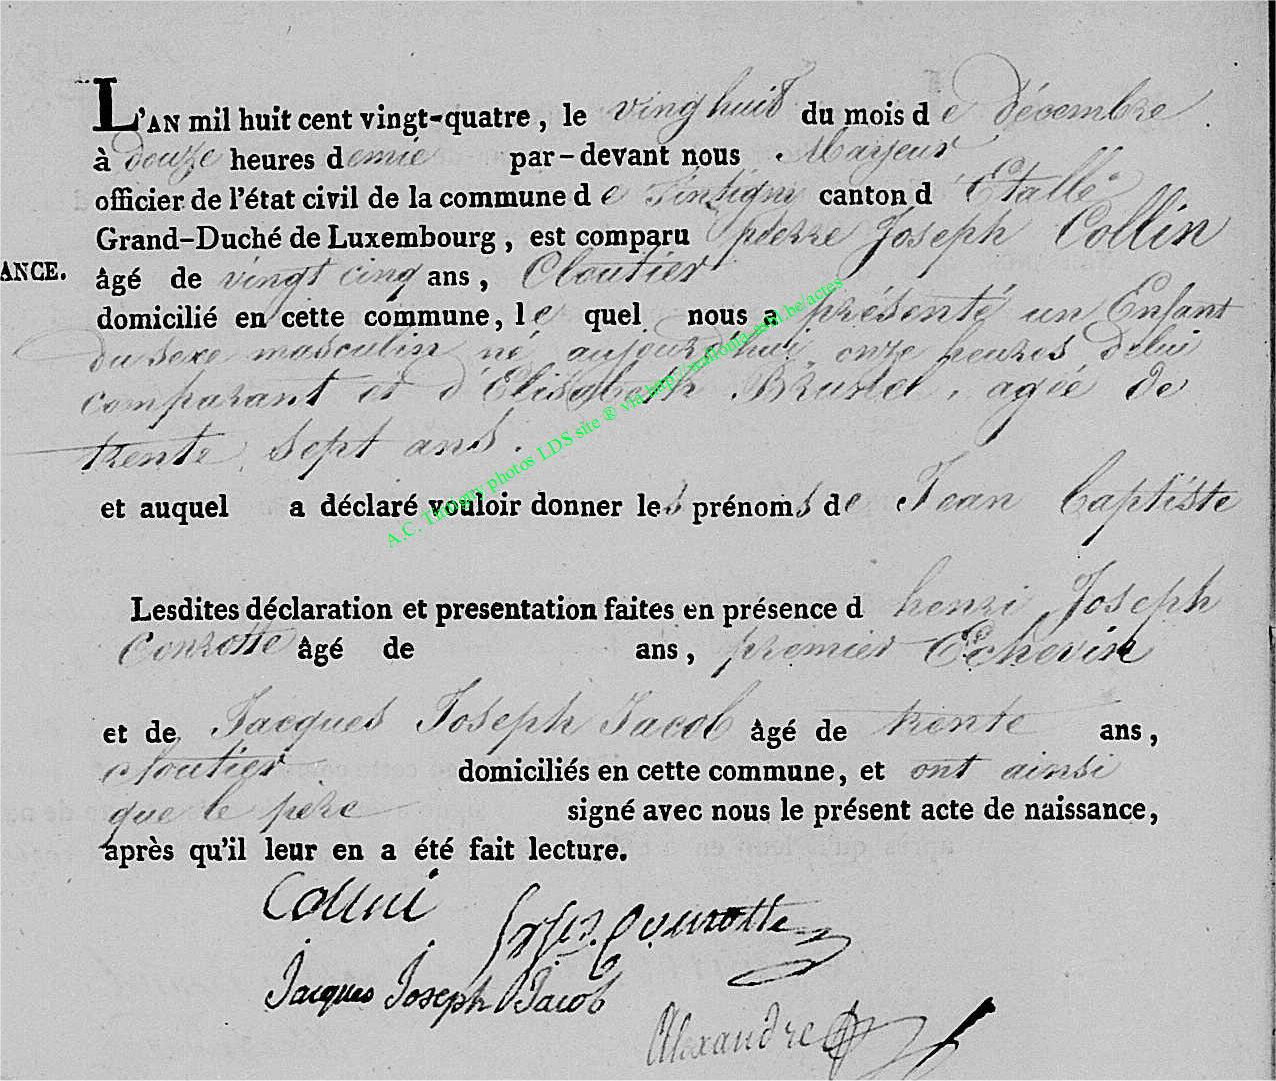 L'AN mil huit cent vingt-quatre, le ving huit du mois de décembre
à douze heures demie par-devant nous Mayeur
officier de l'état civil de la commune de Tintigny canton d'Etalle
Grand-Duché de Luxembourg, est comparu pierre Joseph Collin
ANCE.
âgé de vingt cinq ans, Cloutier
domicilié en cette commune, le quel nous a présenté un Enfant
du sexe masculin né aujourd'hui onze heures delui
comparant et d'Elisabeth agée de
trente sept ans.
et auquel a déclaré vouloir donner les prénoms de Jean baptiste
Lesdites déclaration et presentation faites en présence d henri Joseph
Conrotte âgé de ans, premier Echevin
et de Jacques Joseph Jacob âgé de trente ans,
cloutier domiciliés en cette commune, et ont ainsi
que le père signé avec nous le présent acte de naissance,
après qu'il leur en a été fait lecture.
Collin
Conrotte
Jacques Joseph Jacob
Alexandre
A.C. Tintigny photos LDS site ® via http://wallonia-asbl.be/actes